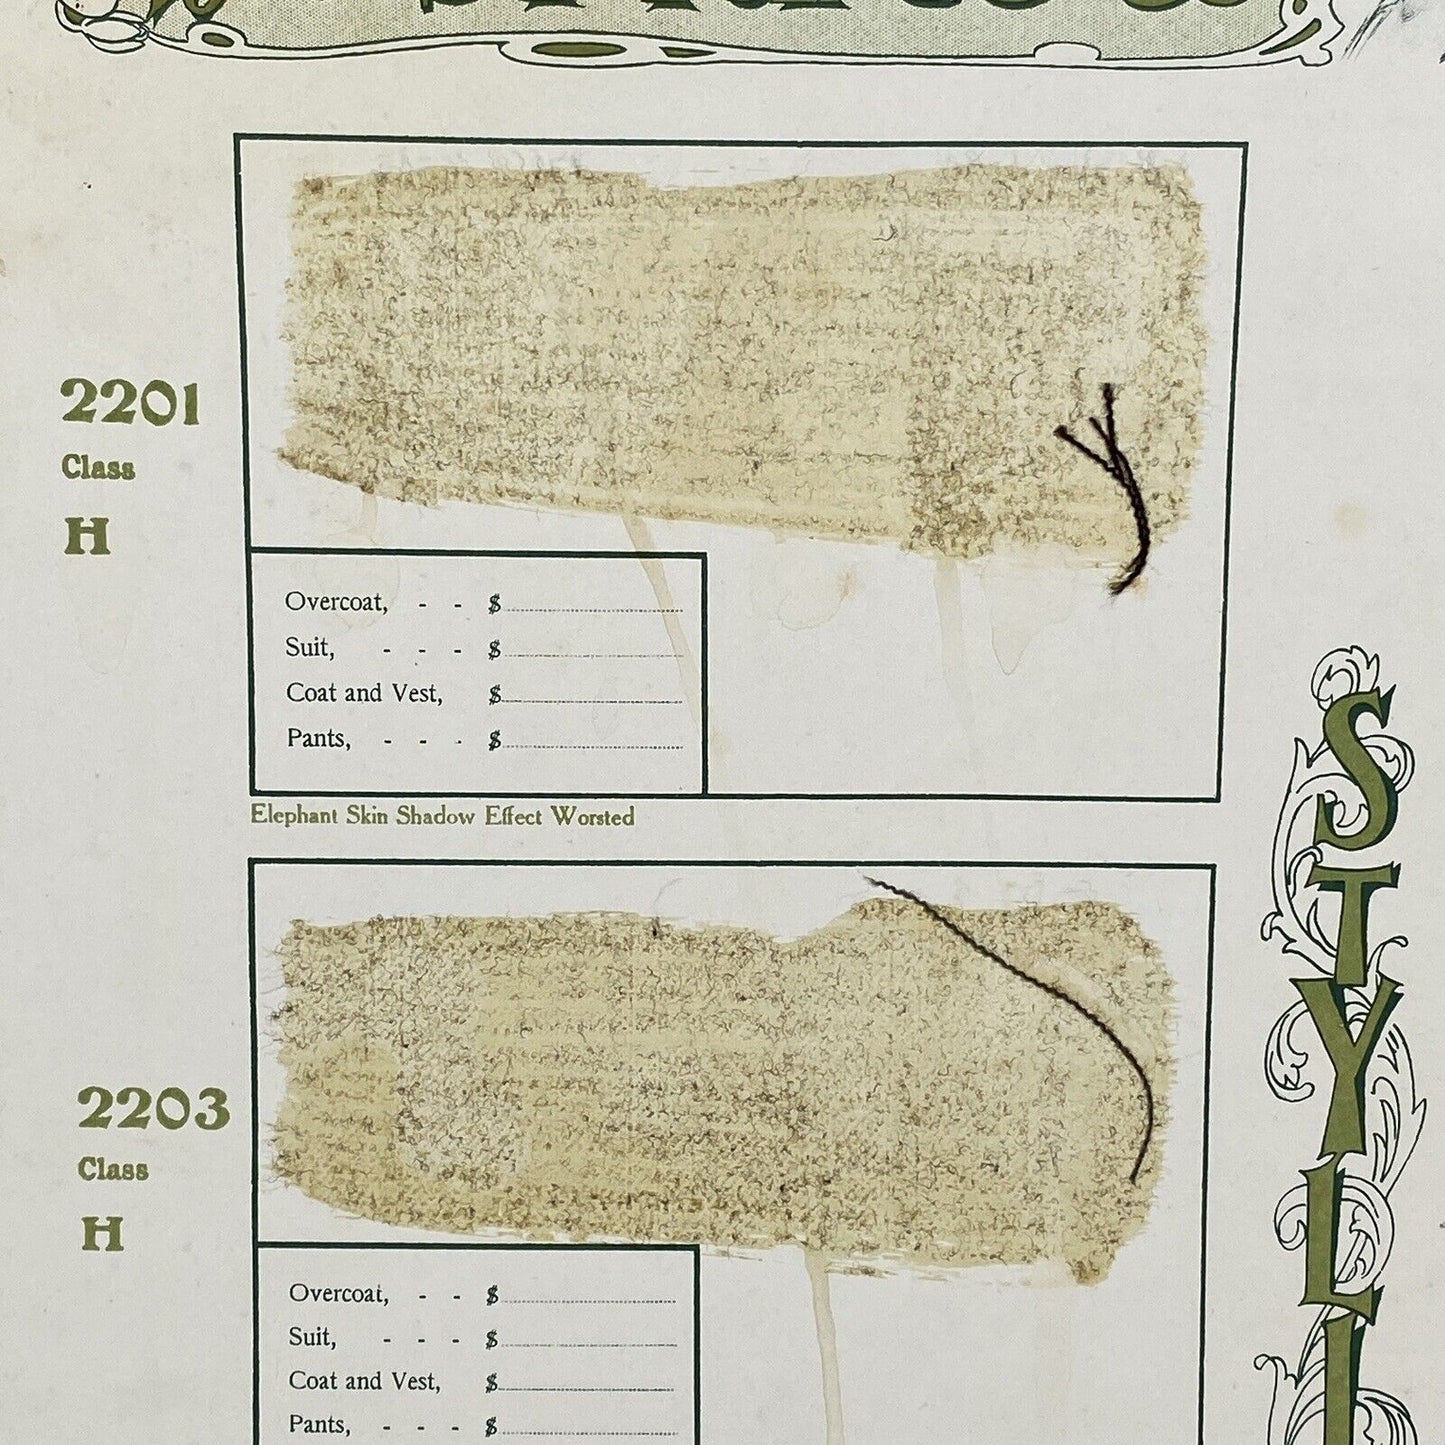 2201
Class
H
Overcoat, - - $
Suit, - - - $
Coat and Vest, $
Pants, - - - $
Elephant Skin Shadow Effect Worsted
2203
Class
H
Overcoat, - - $
Suit, - - - $
Coat and Vest, $
Pants, - - - $
STYLI